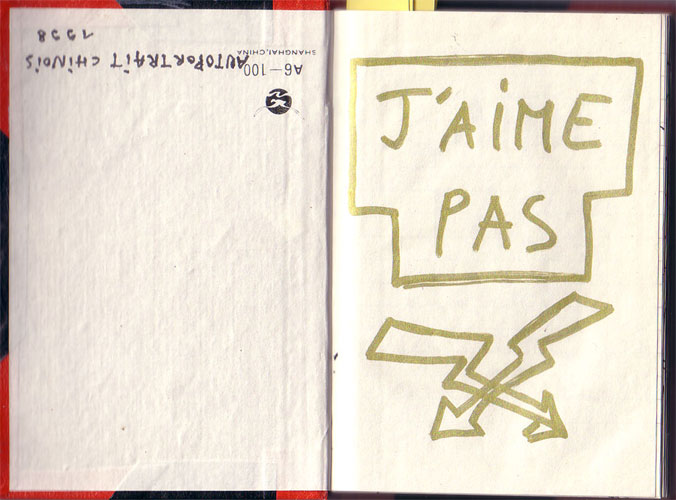 A6—100
SHANGHAI,CHINA
AUTOPORTRAIT CHINOIS
1998
J'AIME
PAS